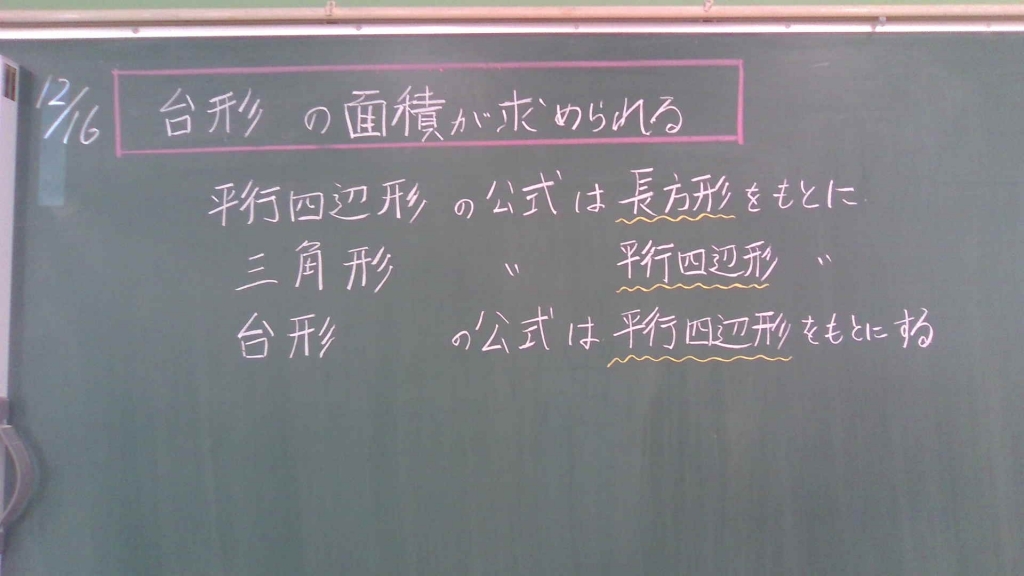 12/16
台形の面積が求められる
平行四辺形の公式は長方形をもとに
三角形 〃 平行四辺形 〃
台形の公式は平行四辺形をもとにする